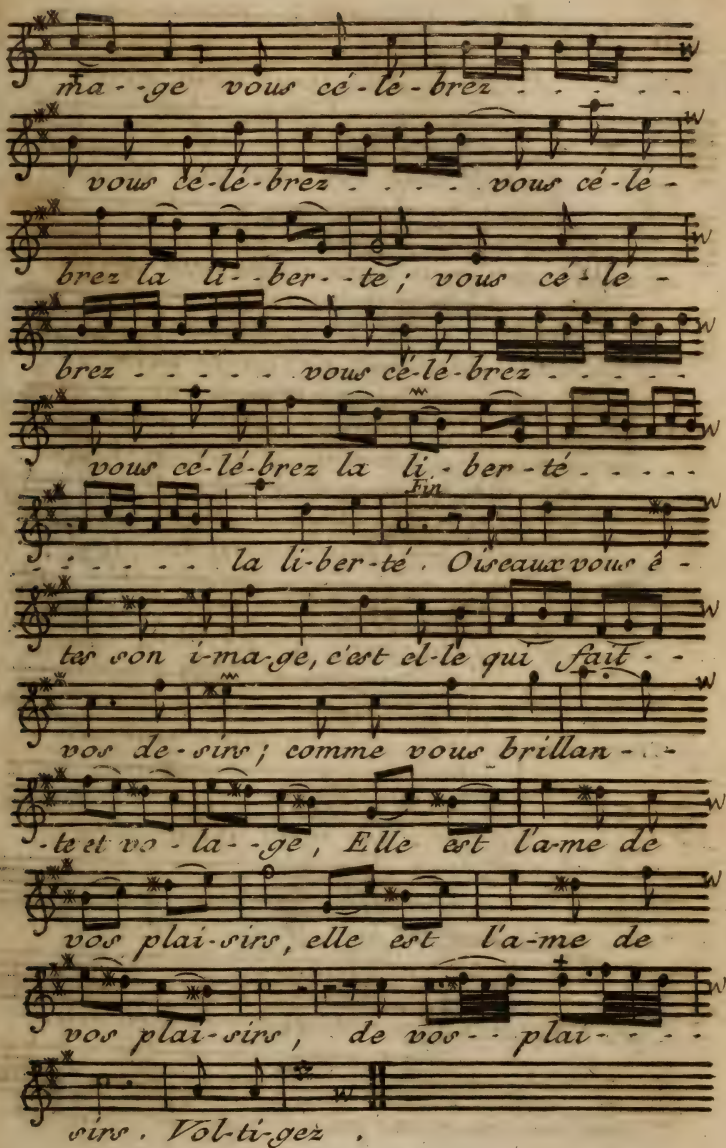 ma - - ge vous cé - lé - brez - - - - -
vous cé - lé - brez - - - - - vous cé - lé -
brez la li - - ber - - te ; vous cé - le -
brez - - - - - vous cé - lé - brez - - - - -
vous cé - lé - brez la li - ber - té - - - - -
Fin
- - - - - la li - ber - té . Oiseaux vous ê -
tes son i - ma - ge, c'est el - le qui fait - -
vos de - sirs ; comme vous brillan - - -
- te et vo - la - - ge , Elle est l'a - me de
vos plai - sirs, elle est l'a - me de
vos plai - sirs , de vos - - plai - - - -
sirs . Vol - ti - gez .